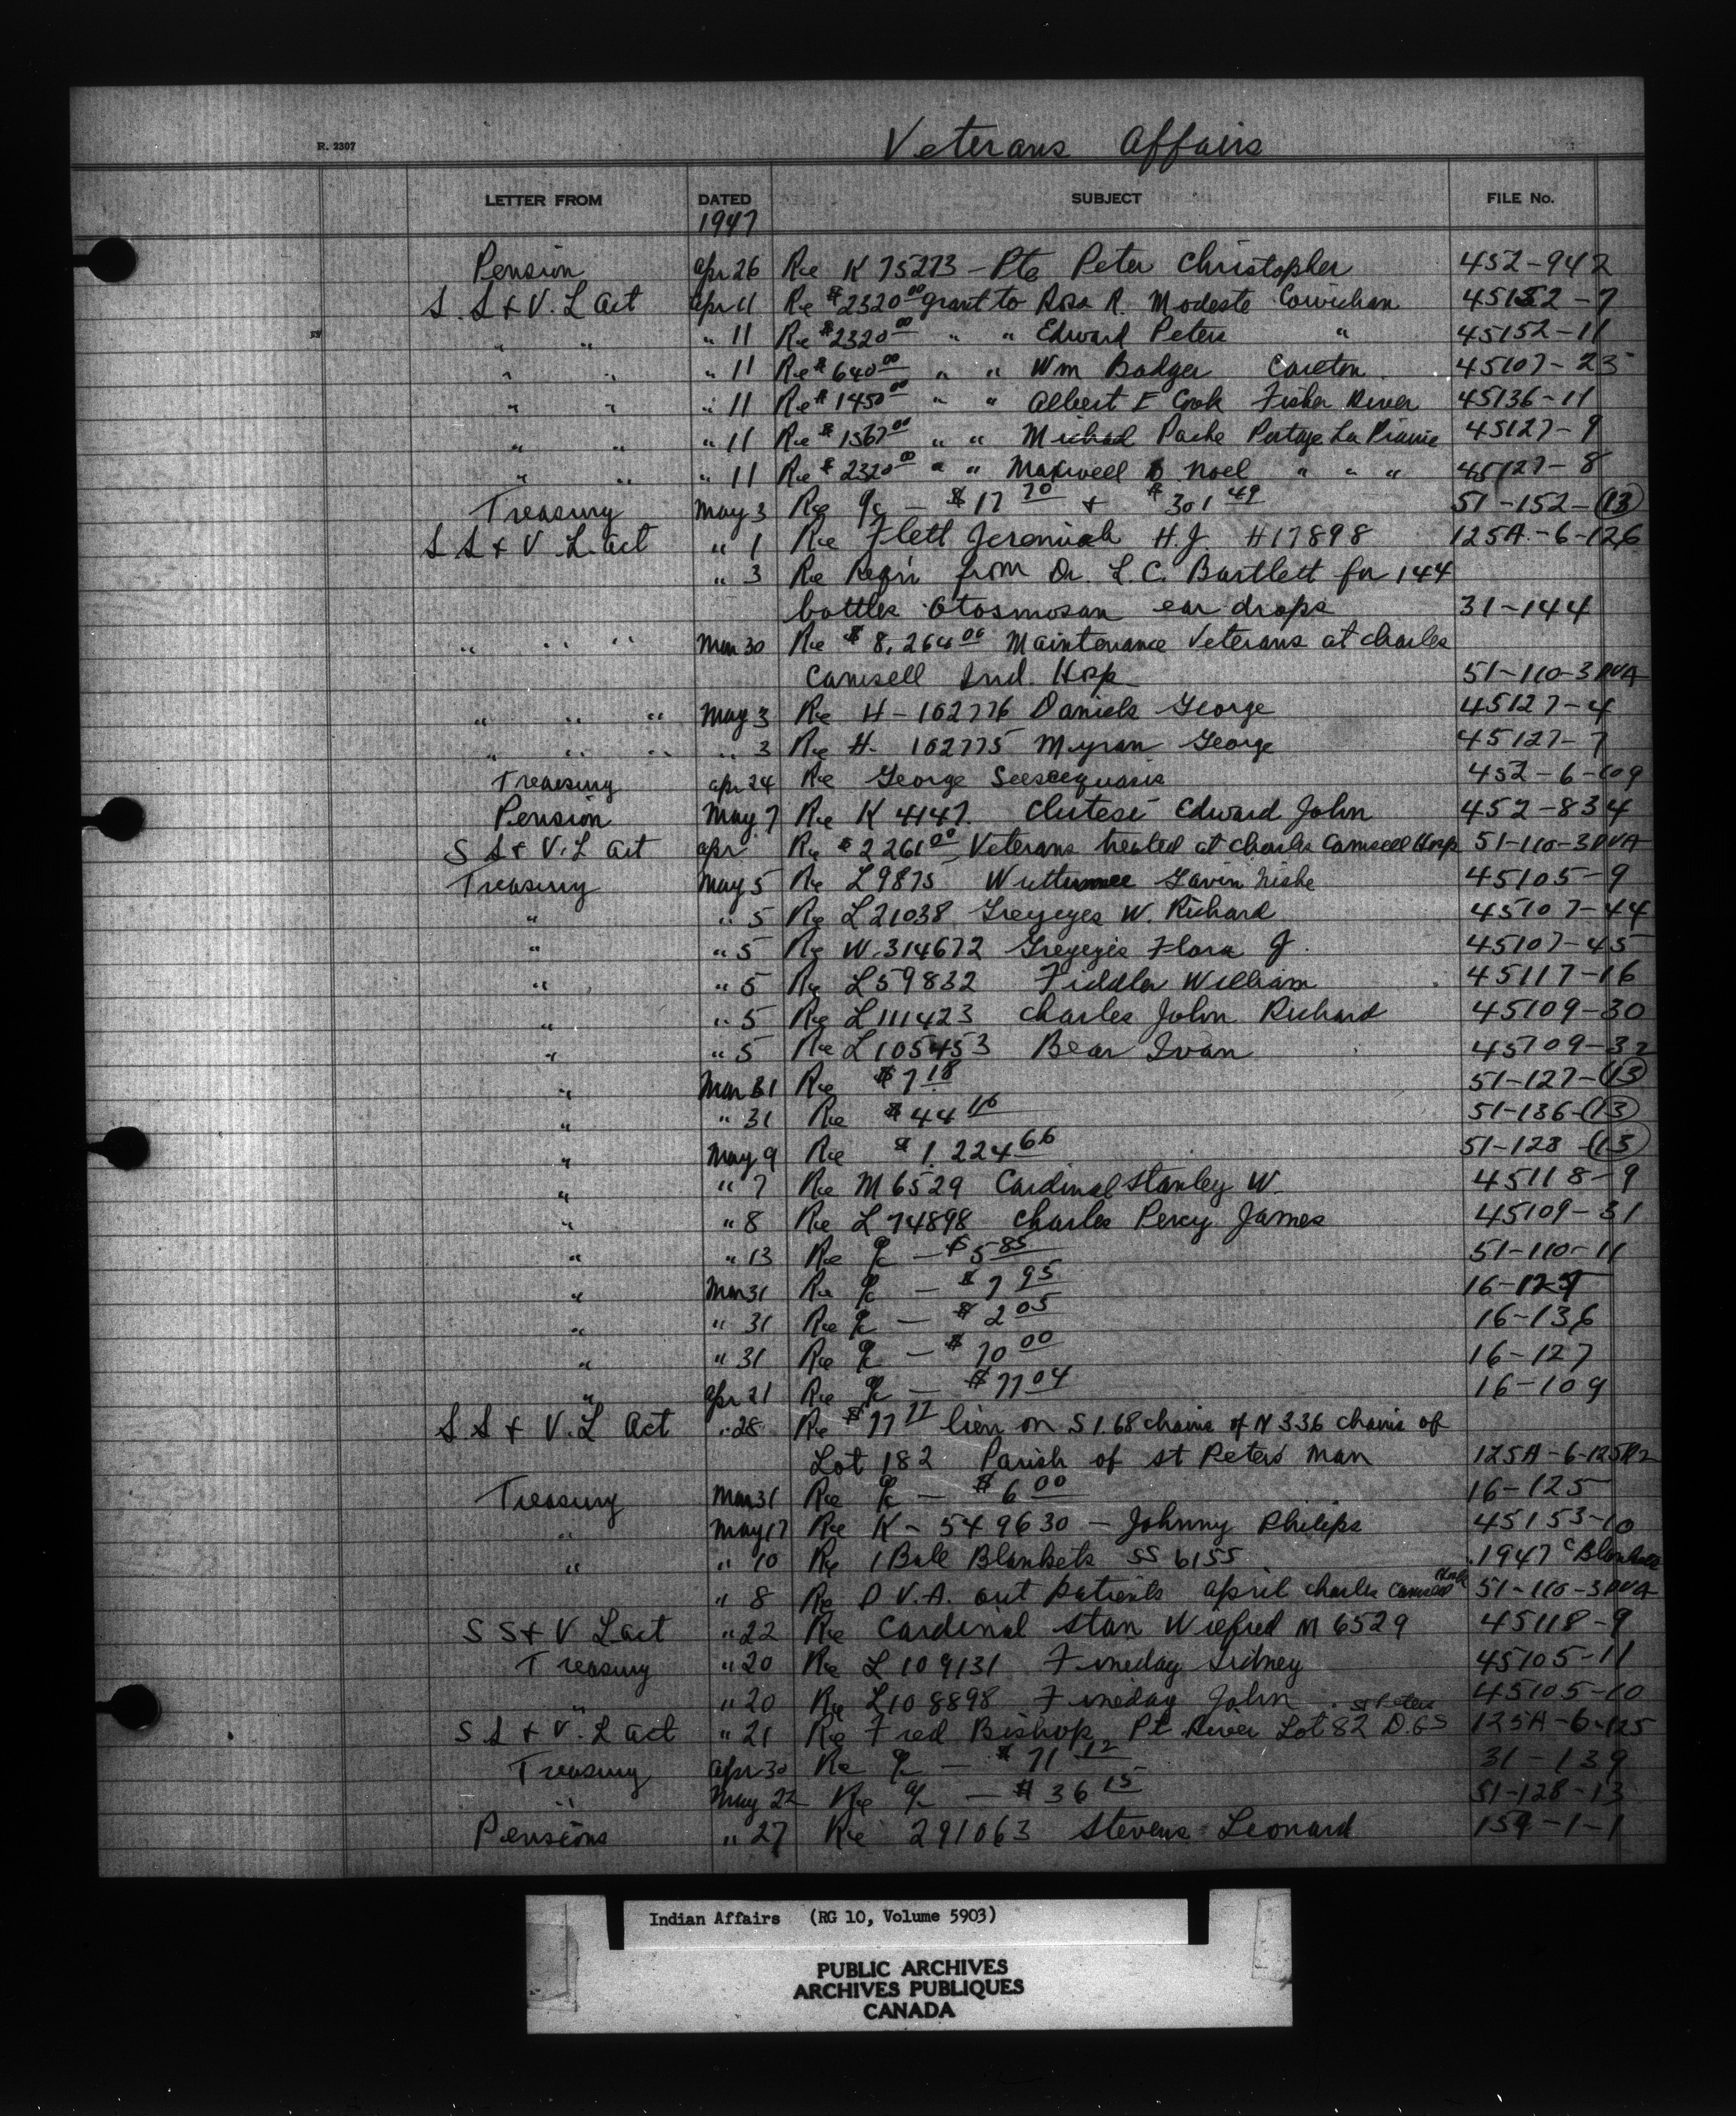 Veterans Affairs
R. 2307
LETTER FROM DATED SUBJECT FILE No.
1947
Pension Apr 26 Re K 75273 - Pte Peter Christopher 452-942
S. S & V. L Act Apr 11 Re $2320 00 grant to Rosa R. Modeste Cowichan 45152-7
" " " 11 Re $2320 00 " " Edward Peters " 45152-11
" " " 11 Re $640 00 " " Wm Badger Carlton 45107-25
" " " 11 Re $1450 00 " " Albert E Cook Fisher River 45136-11
" " " 11 Re $1567 00 " " Michael Pache Portage La Prairie 45127-9
" " " 11 Re $2320 00 " " Maxwell Noel " " " 45127-8
Treasury May 3 Re a/c - $17 70 + $301 49 51-152-(13)
S S & V. L. Act " 1 Re Flett Jeremiah H.J H17898 125A-6-126
" 3 Re Reqn from Dr. L.C. Bartlett for 144
bottles Otosmosan ear drops 31-144
" " " Mar 30 Re $8,264 00 Maintenance Veterans at Charles
Camsell Ind. Hosp 51-110-3 DVA
" " " May 3 Re H-102776 Daniels George 45127-4
" " " " 3 Re H- 102775 Myran George 45127-7
Treasury Apr 24 Re George Seeseequasis 452-6-109
Pension May 7 Re K 4147 Clutesi Edward John 452-834
S S & V. L Act Apr Re $2261 00 Veterans treated at Charles Camsell Hosp 51-110-3 DVA
Treasury May 5 Re L9875 Wuttunee Gavin 45105-9
" " 5 Re L21038 Greyeyes W. Richard 45107-44
" " 5 Re W.314672 Greyeyes Flora J. 45107-45
" " 5 Re L59832 Fiddler William 45117-16
" " 5 Re L111423 Charles John Richard 45109-30
" " 5 Re L105453 Bear Ivan 45109-32
" Mar 31 Re $7 18 51-127-(13)
" " 31 Re $44 16 51-136-(13)
" May 9 Re $1,224 66 51-128-(13)
" " 7 Re M6529 Cardinal Stanley W. 45118-9
" " 8 Re L74898 Charles Percy James 45109-31
" " 13 Re a/c - $5 85 51-110-11
" Mar 31 Re a/c - $7 95 16-129
" " 31 Re a/c - $2 05 16-136
" " 31 Re a/c - $10 00 16-127
" Apr 21 Re a/c - $77 04 16-109
S. S & V. L Act " 28 Re $77 77 lien on S 1.68 chains of N 336 chains of
Lot 182 Parish of St Peters Man 125A-6-125
Treasury Mar 31 Re a/c - $6 00 16-125
" May 17 Re K-549630 - Johnny Philips 45153-10
" " 10 Re 1 Bale Blankets SS 6155 1947 Blankets
" 8 Re D.V.A. out patients April Charles Camsell Hosp 51-110-3 DVA
S S & V L Act " 22 Re Cardinal Stan Wilfred M 6529 45118-9
Treasury " 20 Re L109131 Fineday Sidney 45105-11
" " 20 Re L108898 Fineday John 45105-10
S S & V. L Act " 21 Re Fred Bishop Pt River Lot 82 D.G.S St Peters 125A-6-125
Treasury Apr 30 Re a/c - $71 12 31-139
" May 22 Re a/c - $36 15 51-128-13
Pensions " 27 Re 291063 Stevens Leonard 159-1-1
Indian Affairs (RG 10, Volume 5903)
PUBLIC ARCHIVES
ARCHIVES PUBLIQUES
CANADA